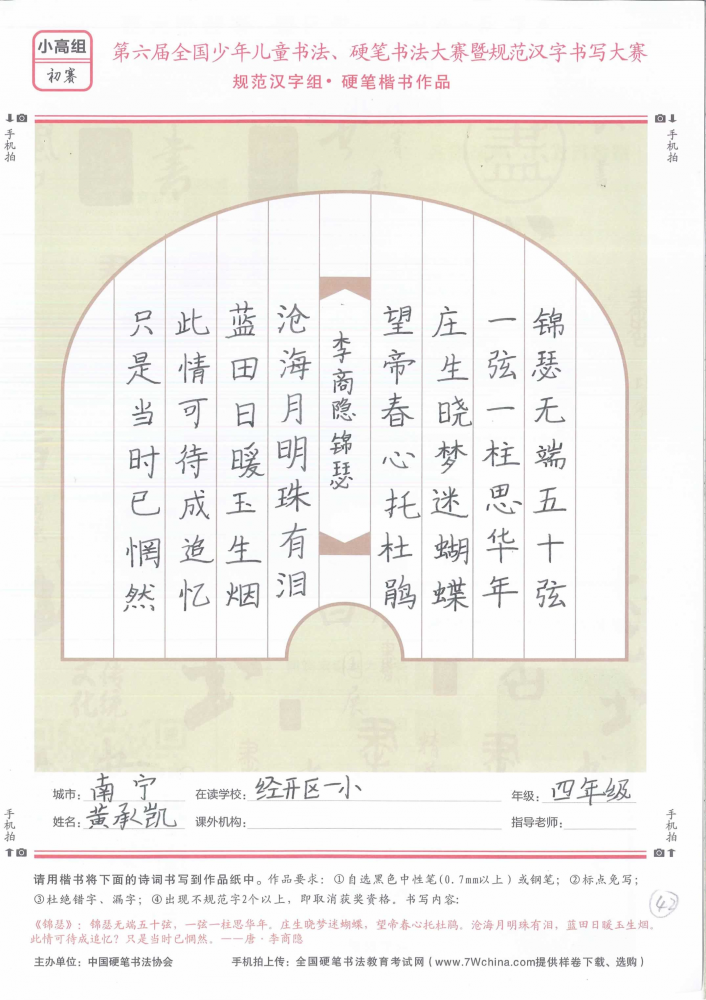 小高组
初赛
第六届全国少年儿童书法、硬笔书法大赛暨规范汉字书写大赛
规范汉字组·硬笔楷书作品
手机拍
手机拍
锦瑟无端五十弦
一弦一柱思华年
庄生晓梦迷蝴蝶
望帝春心托杜鹃
李商隐锦瑟
沧海月明珠有泪
蓝田日暖玉生烟
此情可待成追忆
只是当时已惘然
城市：南宁 在读学校：经开区一小 年级：四年级
姓名：黄承凯 课外机构： 指导老师：
手机拍
手机拍
请用楷书将下面的诗词书写到作品纸中。作品要求：①自选黑色中性笔(0.7mm以上)或钢笔；②标点免写；
③杜绝错字、漏字；④出现不规范字2个以上，即取消获奖资格。书写内容：
42
《锦瑟》：锦瑟无端五十弦，一弦一柱思华年。庄生晓梦迷蝴蝶，望帝春心托杜鹃。沧海月明珠有泪，蓝田日暖玉生烟。
此情可待成追忆？只是当时已惘然。——唐·李商隐
主办单位：中国硬笔书法协会 手机拍上传：全国硬笔书法教育考试网（www.7Wchina.com提供样卷下载、选购）